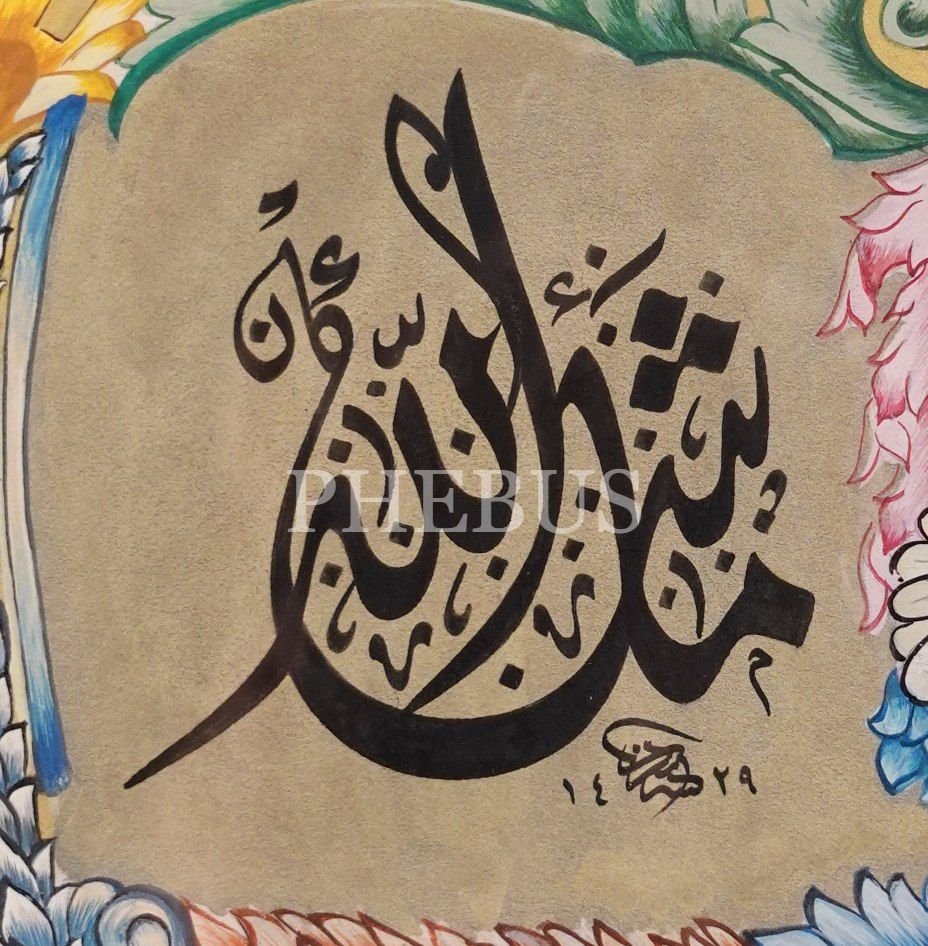 ما شاء الله كان
PHEBUS
١٤٢٩